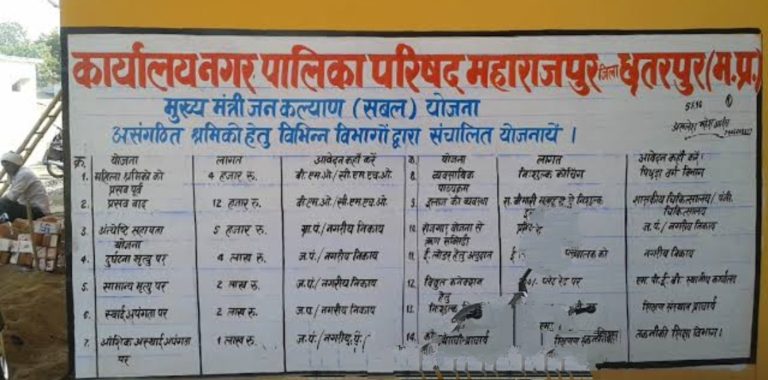 कार्यालय नगर पालिका परिषद महाराजपुर जिला छतरपुर (म.प्र.)
मुख्य मंत्री जन कल्याण (सबल) योजना
असंगठित श्रमिको हेतु विभिन्न विभागों द्वारा संचालित योजनायें ।
क्र. योजना लागत आवेदन कहाँ करें
1. महिला श्रमिको को प्रसव पूर्व 4 हजार रु. बी.एम.ओ./सी.एम.एच.ओ.
2. प्रसव बाद 12 हजार रु. बी.एम.ओ./सी.एम.एच.ओ.
3. अंत्येष्टि सहायता योजना 5 हजार रु. ग्रा.पं./नगरीय निकाय
4. दुर्घटना मृत्यु पर 4 लाख रु. ज.पं./नगरीय निकाय
5. सामान्य मृत्यु पर 2 लाख रु. ज.पं./नगरीय निकाय
6. स्थाई अपंगता पर 2 लाख रु. ज.पं./नगरीय निकाय
7. आंशिक अस्थाई अपंगता पर 1 लाख रु. ज.पं./नगरीय
क्र. योजना लागत आवेदन कहाँ करें
8. व्यवसायिक पाठ्यक्रम निःशुल्क कोचिंग पिछड़ा वर्ग विभाग
9. इलाज की व्यवस्था निःशुल्क शासकीय चिकित्सालय/ पंजी. चिकित्सालय
10. रोजगार योजना से ऋण सब्सिडी ज.पं./नगरीय निकाय
11. ई.लोडर हेतु अनुदान नगरीय निकाय
12. विद्युत कनेक्शन हेतु फ्लेट रेट पर एम.पी.ई.बी. स्थानीय कार्यालय
13. निःशुल्क शिक्षण संस्थान प्राचार्य
14. शिक्षण तकनीकी शिक्षा विभाग।